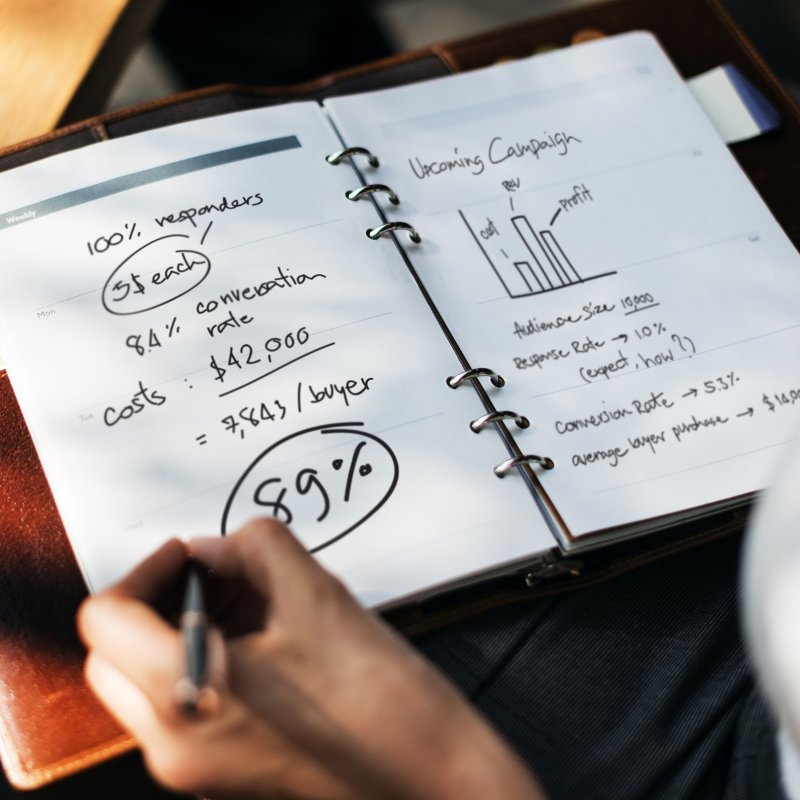 Weekly
100% responders
5$ each
Mon
8.4% conversation
rate
Tue
costs : $42,000
= 7,843 / buyer
89%
Upcoming Campaign
Rev
cost
profit
Audience Size 10,000
Response Rate → 10%
(expect, how?)
Conversion Rate → 5.3%
average buyer purchase →